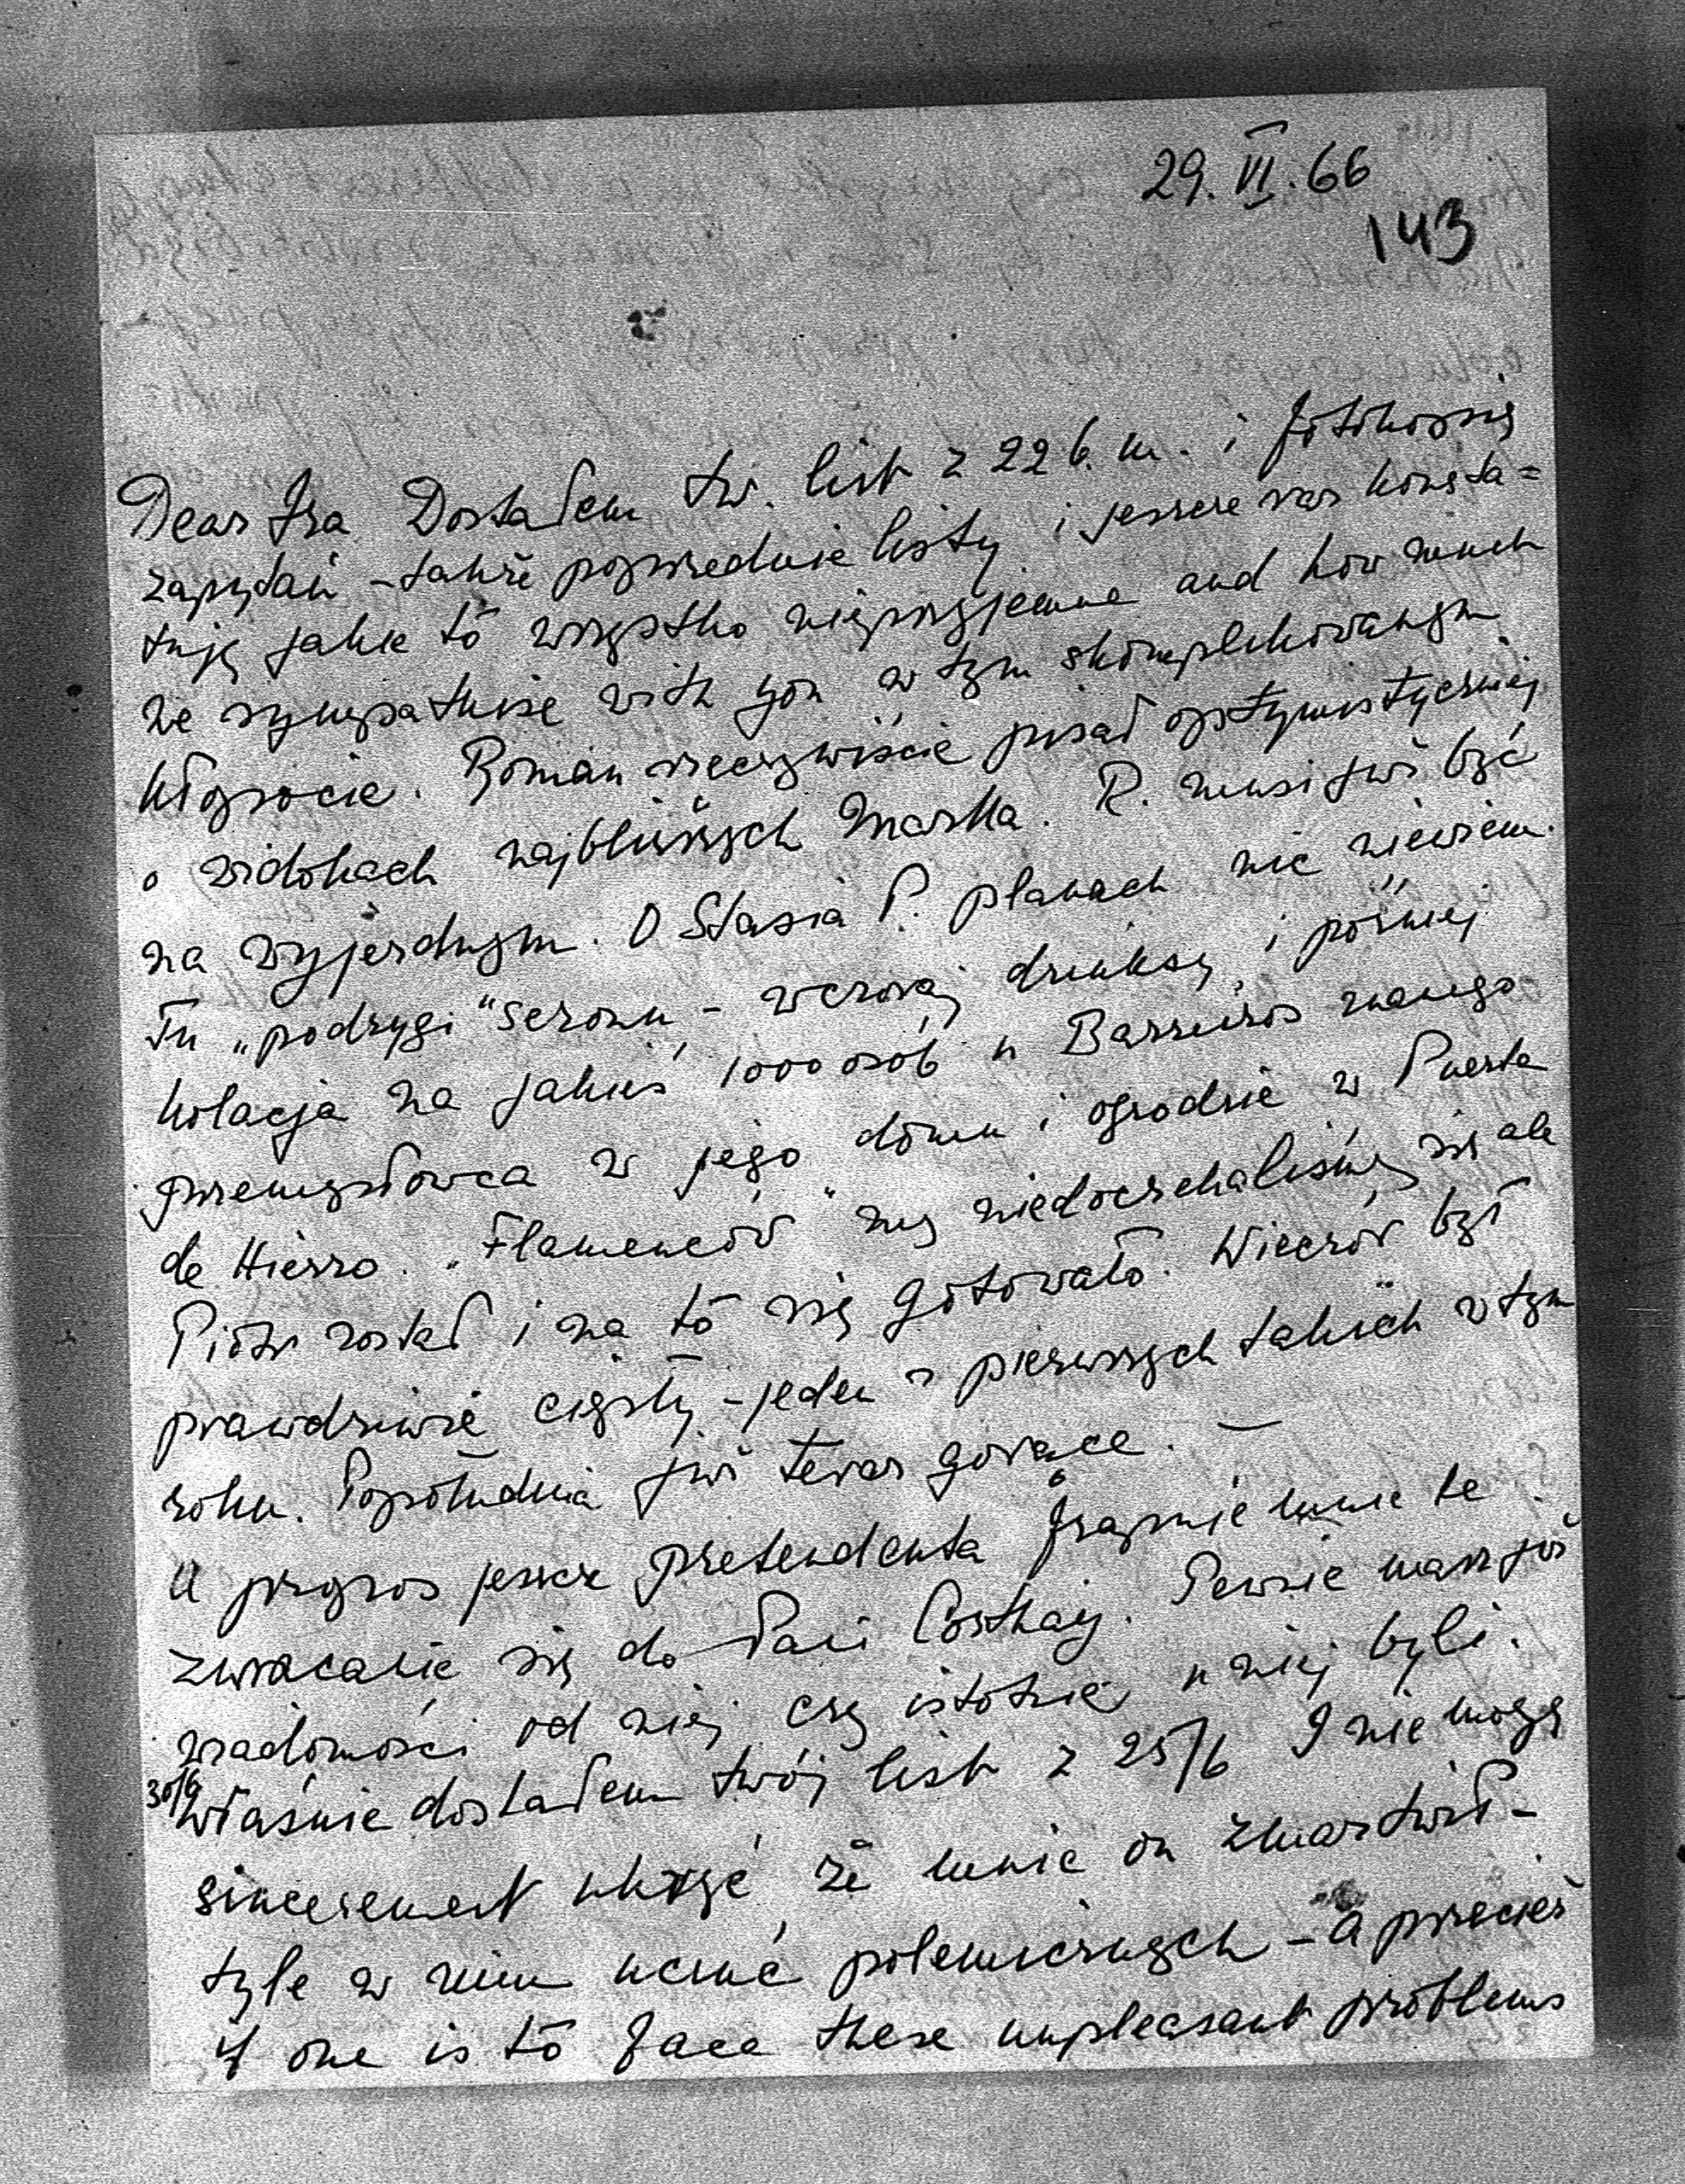 29. VI. 66
143
Dear Isa Dostałem tw. list z 22 b. m. i fotokopię
zapytań - także poprzednie listy i jeszcze raz konsta=
tuję jakie to wszystko nieprzyjemne and how much
we sympathise with you w tym skomplikowanym
kłopocie. Roman rzeczywiście pisał optymistyczniej
o widokach najbliższych Marka. R. musi już być
na wyjezdnym. O Stasia P. planach nic niewiem.
Tu „podrygi" sezonu - wczoraj drinksy i później
kolacja na jakieś 1000 osób u Barreiros znanego
przemysłowca w jego domu i ogrodzie w Puerta
de Hierro. „Flamenców" my niedoczekaliśmy się ale
Piotr został i na to się gotowało. Wieczór był
prawdziwie ciepły - jeden z pierwszych takich w tym
roku. Popołudnia już teraz gorące. —
A propos jeszcze pretendenta frapuje mnie te
zwracanie się do Pani Costkay. Pewnie masz już
wiadomości od niej czy istotnie u niej byli.
30/6 Właśnie dostałem twój list z 25/6 I nie mogę
sincerement ukryć, że mnie on zmartwił -
tyle w nim uczuć polemicznych - a przecież
if one is to face these unpleasant problems